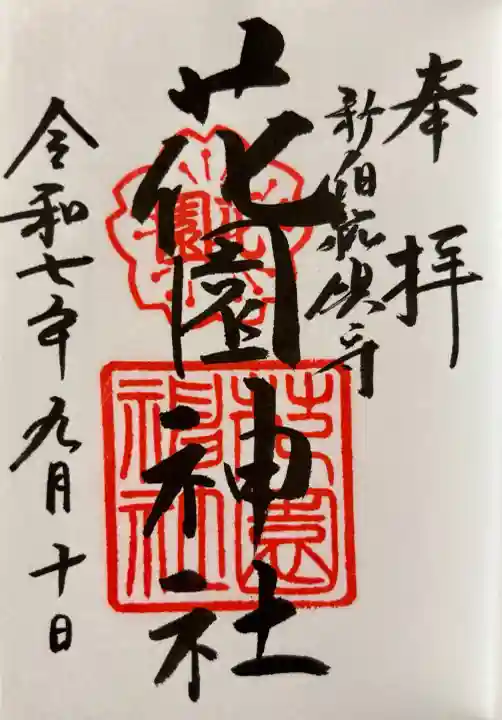 奉拝
新宿総鎮守
花園神社
令和七年九月十日
花園
花園神社